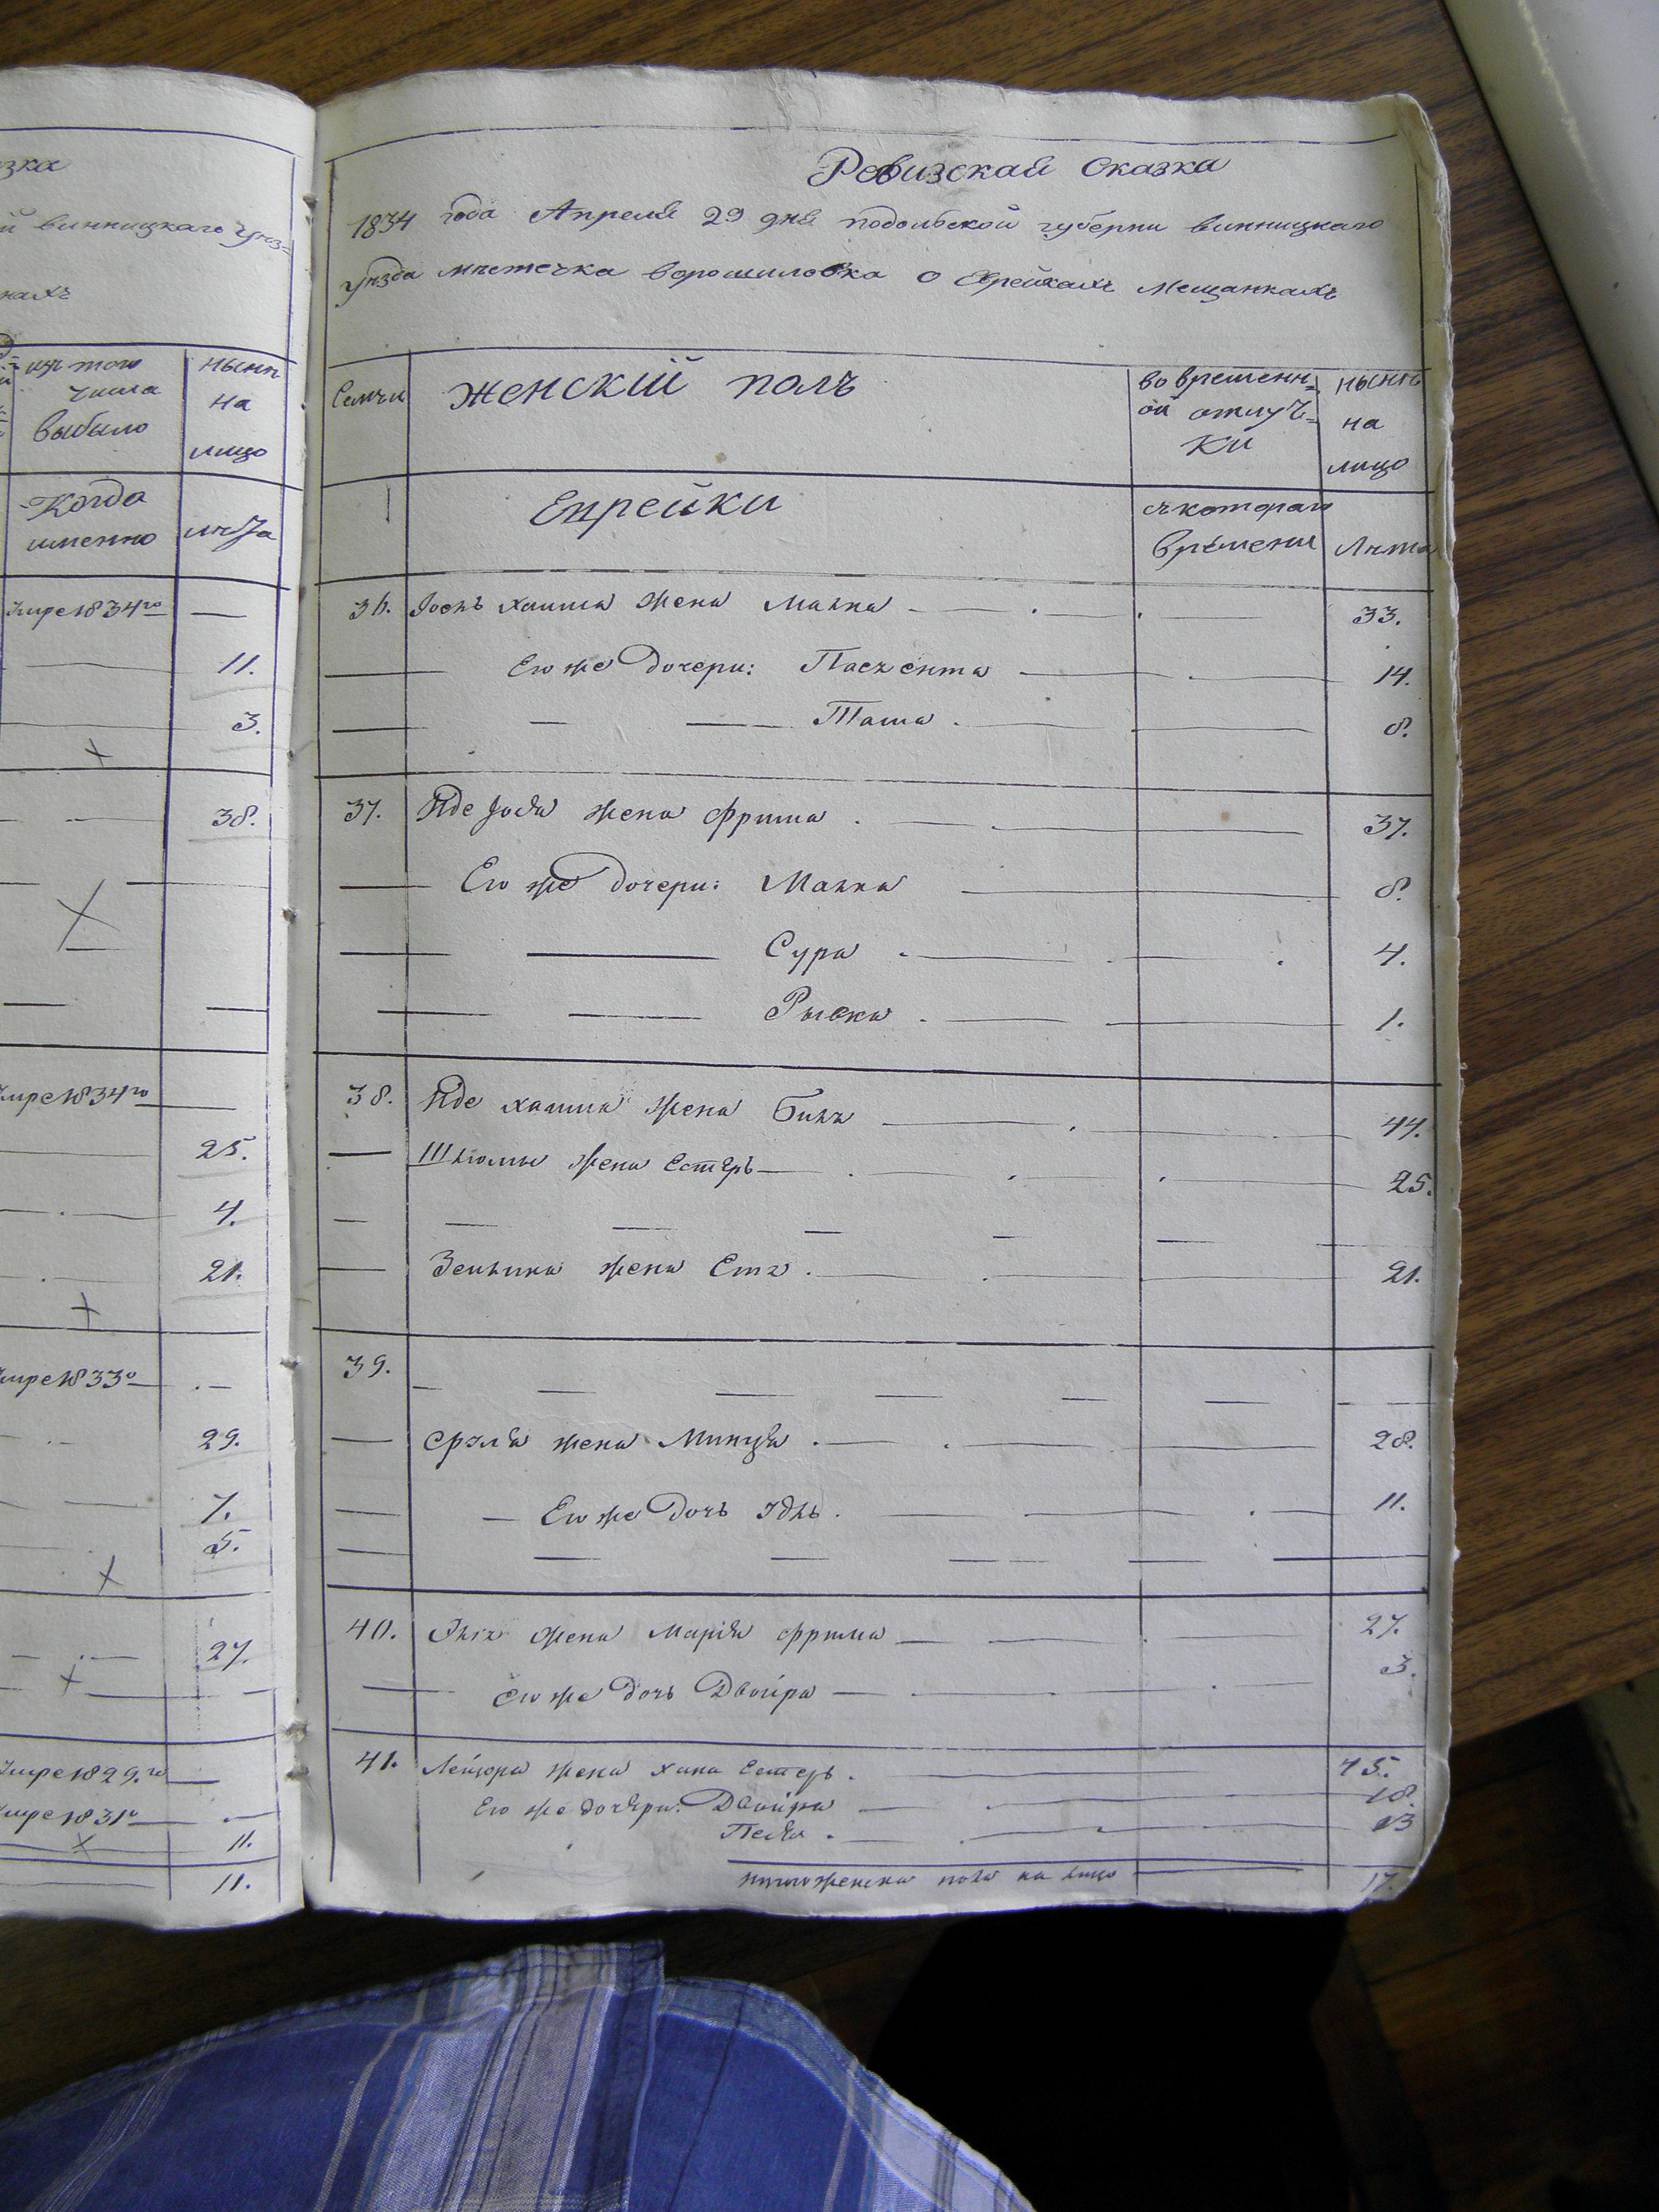 зка
й винницкаго уѣз=
нахъ
изъ того
числа
выбыло
нынѣ
на
лицо
Когда
именно
лѣта
умре 1834го
11.
3.
38.
умре 1834го
25.
4.
21.
умре 1833о
29.
7.
5.
27.
умре 1829.го
умре 1831о
11.
11.
Ревизская Сказка
1834 года Апреля 29 дня подольской губерни винницкаго
уѣзда мѣстечка ворошиловка о Еврейкахъ Мещанкахъ
Семьи
женскій полъ
во времен=
ой отлуч=
ки
нынѣ
на
лицо
Еврейки
съ которап
времени
Лѣта
36. жена Малка 33.
Его же Дочери: 14.
Таша 8.
37. Иде Іося жена Фрима 37.
Его же дочери: Малка 8.
Сура 4.
Рывка 1.
38. Иде хаима жена 44.
Шлиомы жена Естеръ 25.
жена Етъ 21.
39.
Сруля жена Минця 28.
Его же Дочь 11.
40. жена Марія Фрима 27.
Его же дочь Двойра 3.
41. Лейзора жена хана Естеръ 45.
Его же дочери: Двойра 18.
Песя 13
итого женска пола на лицо 17.